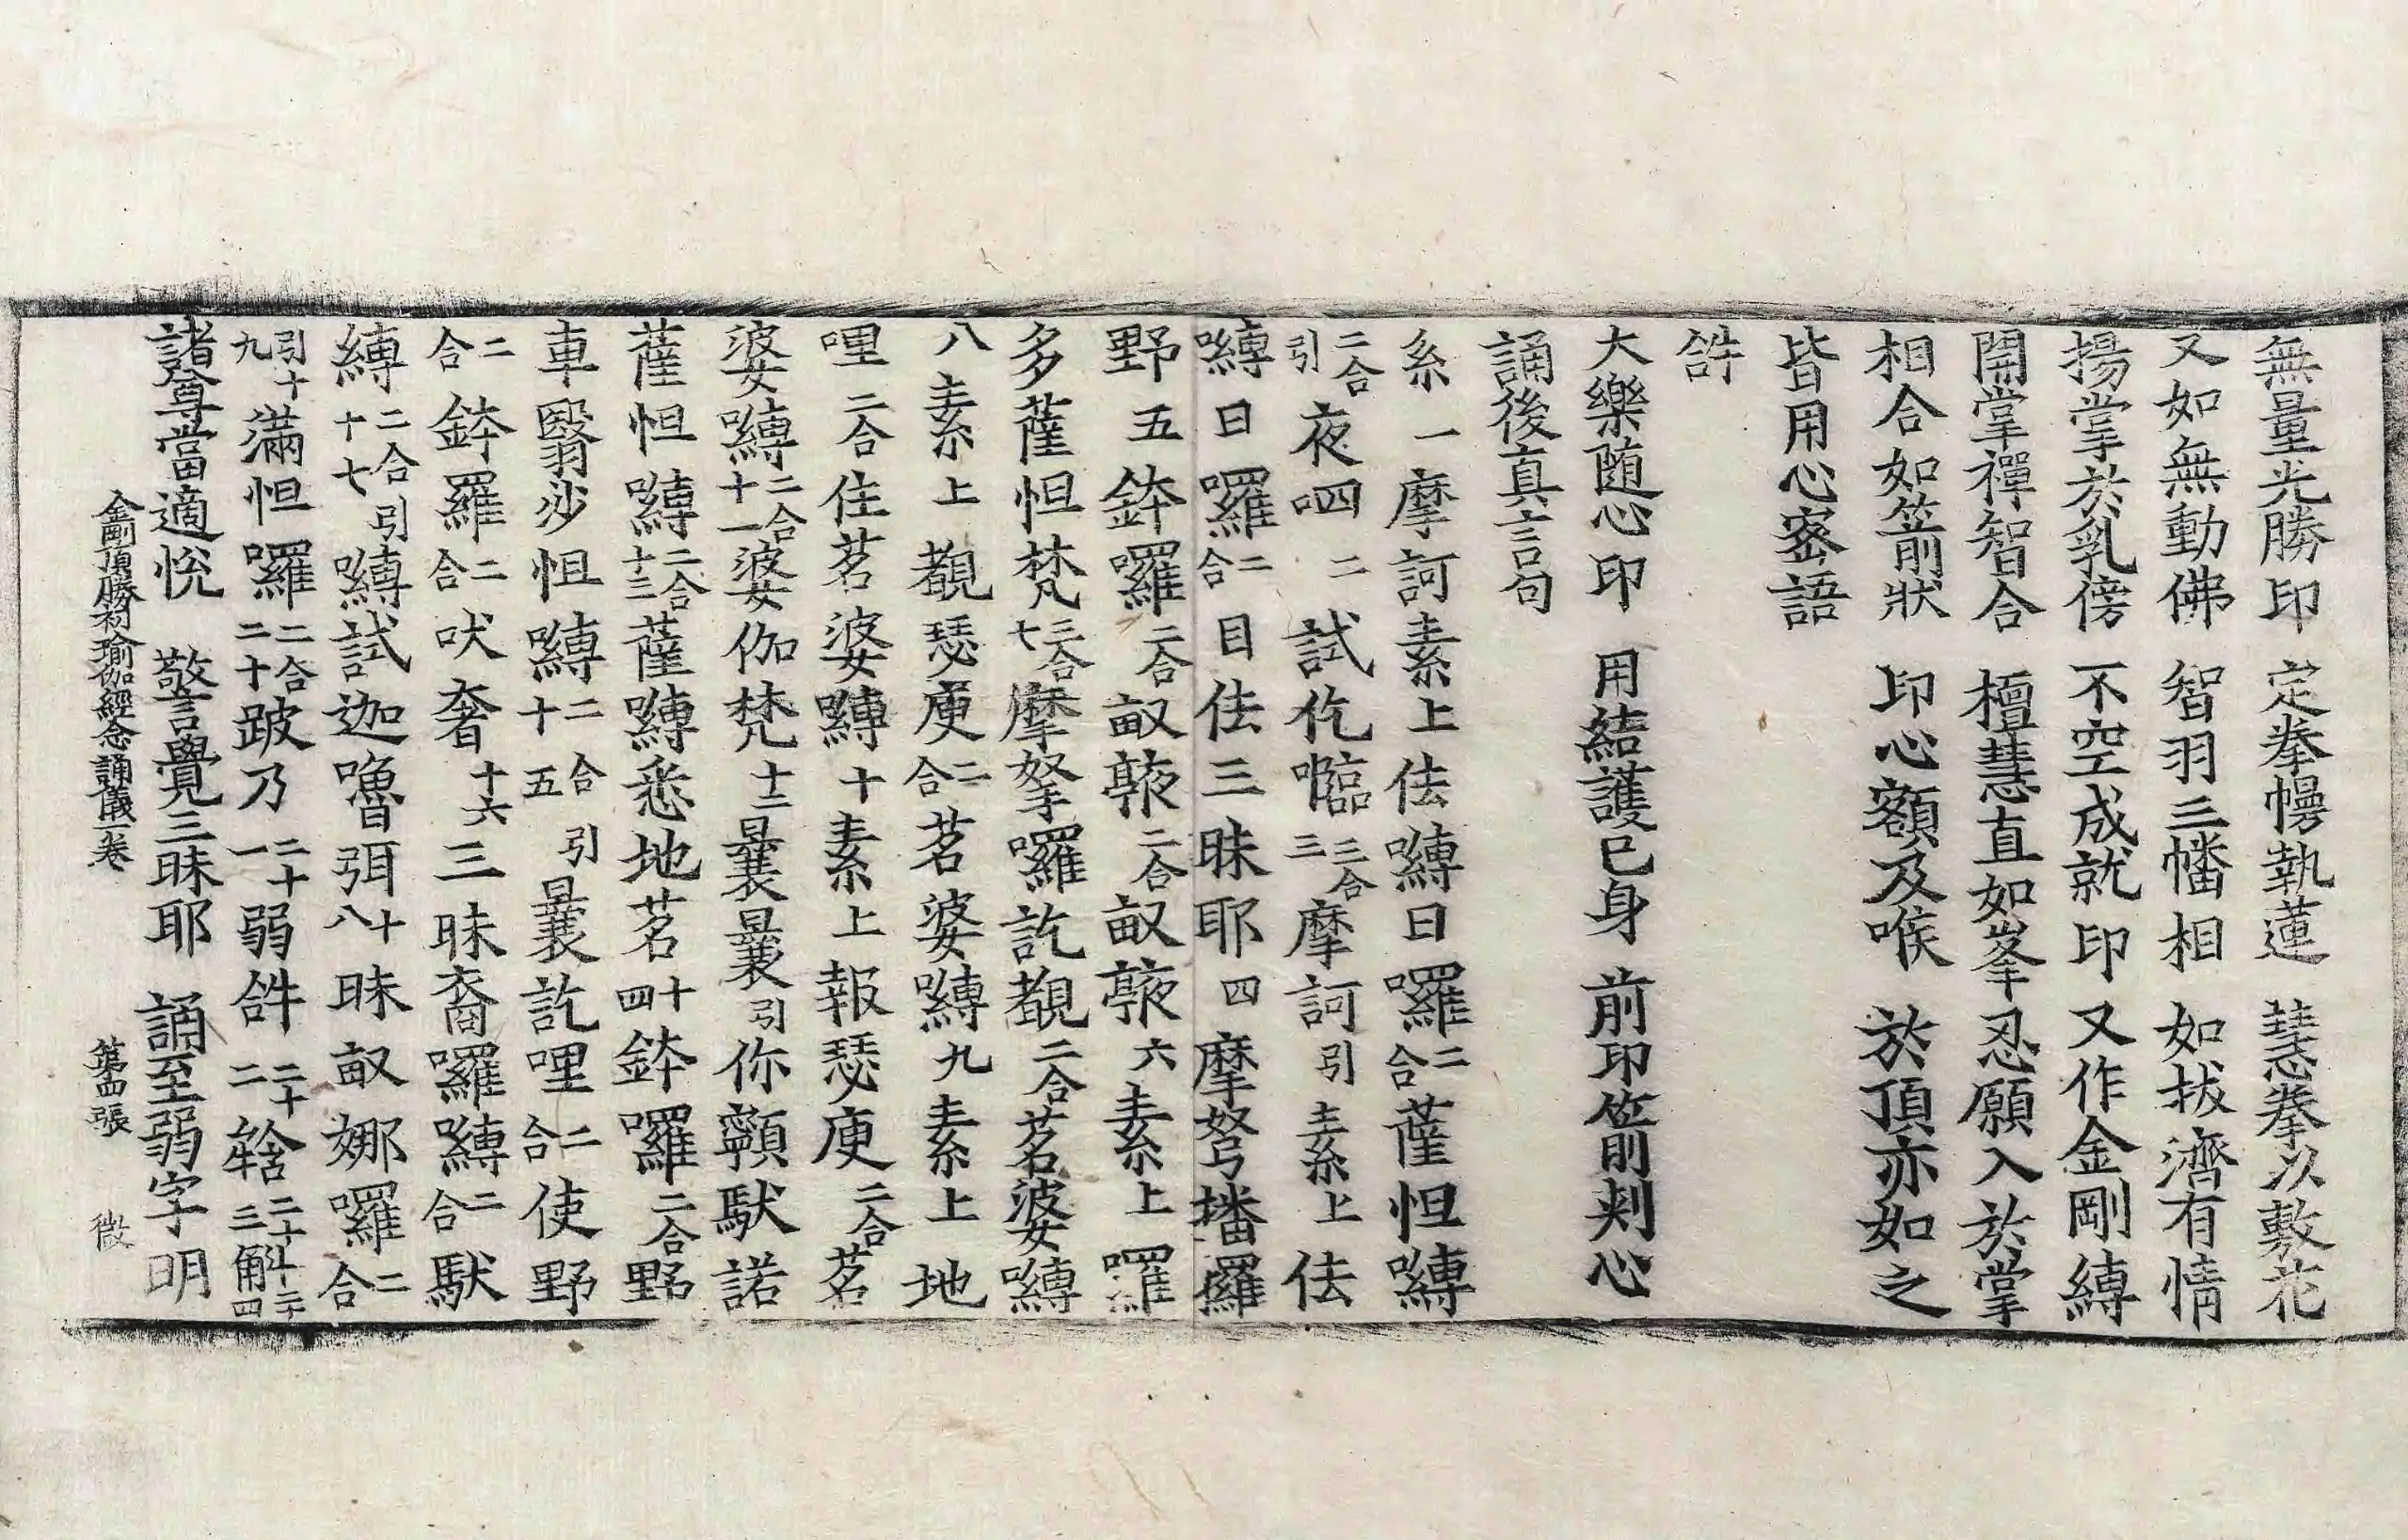 無量光勝印 定拳㡢執蓮 慧拳以敷花
又如無動佛 智羽三幡相 如拔濟有情
揚掌於乳傍 不空成就印 又作金剛縛
開掌禪智合 檀慧直如峯 忍願入於掌
相合如箭狀 印心額及喉 於頂亦如之
皆用心密語
𤙖
大樂随心印 用結護己身 前印箭刾心
誦後真言句
系一摩訶素上佉嚩日囉二合薩怛嚩
二合引夜呬二試仡𡂡三合三摩訶引素上佉
嚩日囉二合目佉三昧耶四摩弩播攞
野五鉢囉二合㕞𠅙二合㕞𠅙六素上囉
多薩怛梵三合七摩拏囉訖覩二合茗婆嚩
八素上覩瑟㢮二合茗婆嚩九素上地
哩二合住茗婆嚩十素上報瑟㢮二合茗
婆嚩二合十一婆伽梵十二曩曩引你顊馱諾
薩怛嚩二合十三薩嚩悉地茗十四鉢囉二合野
車翳沙怛嚩二合十五引曩訖哩二合使野
二合鉢羅二合吠奢十六三昧裔囉嚩二合馱
縛二合引十七嚩試迦嚕弭十八昧㕞娜囉二合
引十九滿怛囉二合二十跛乃二十一弱𤙖二十二𤚥二十三斛二十四
諸尊當適悅 警覺三昧耶 誦至弱字明
金剛頂勝初瑜伽經念誦儀一卷 第四張 㣲